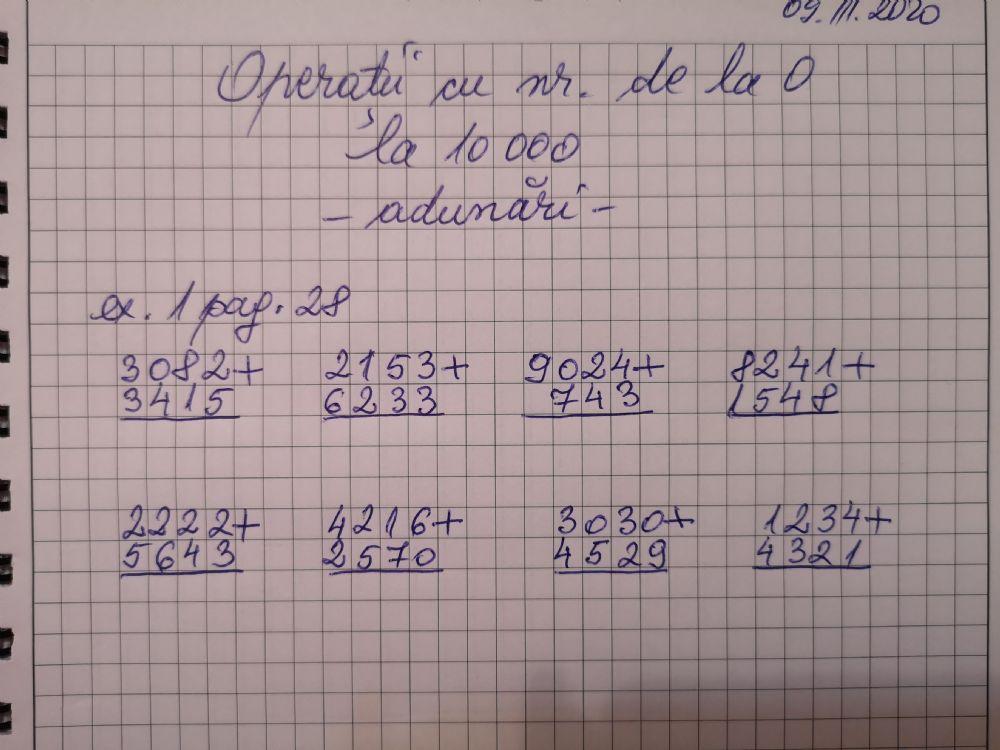 09. III. 2020
Operații cu nr. de la 0
la 10 000
- adunări -
ex. 1 pag. 28
3082+ 2153+ 9024+ 8241+
3415 6233 743 1548
2222+ 4216+ 3030+ 1234+
5643 2570 4529 4321